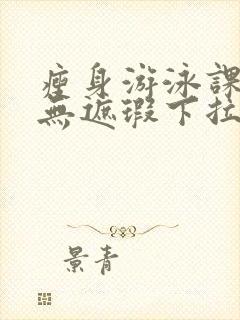 瘦身游泳課
無遮瑕下拉
景青